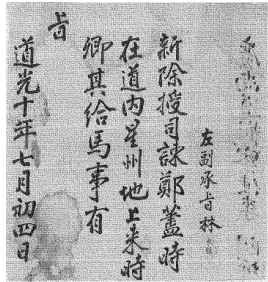 左副承旨林
新除授司諫鄭蓋時
在道內星州地上來時
卿其給馬事有
旨
道光十年七月初四日